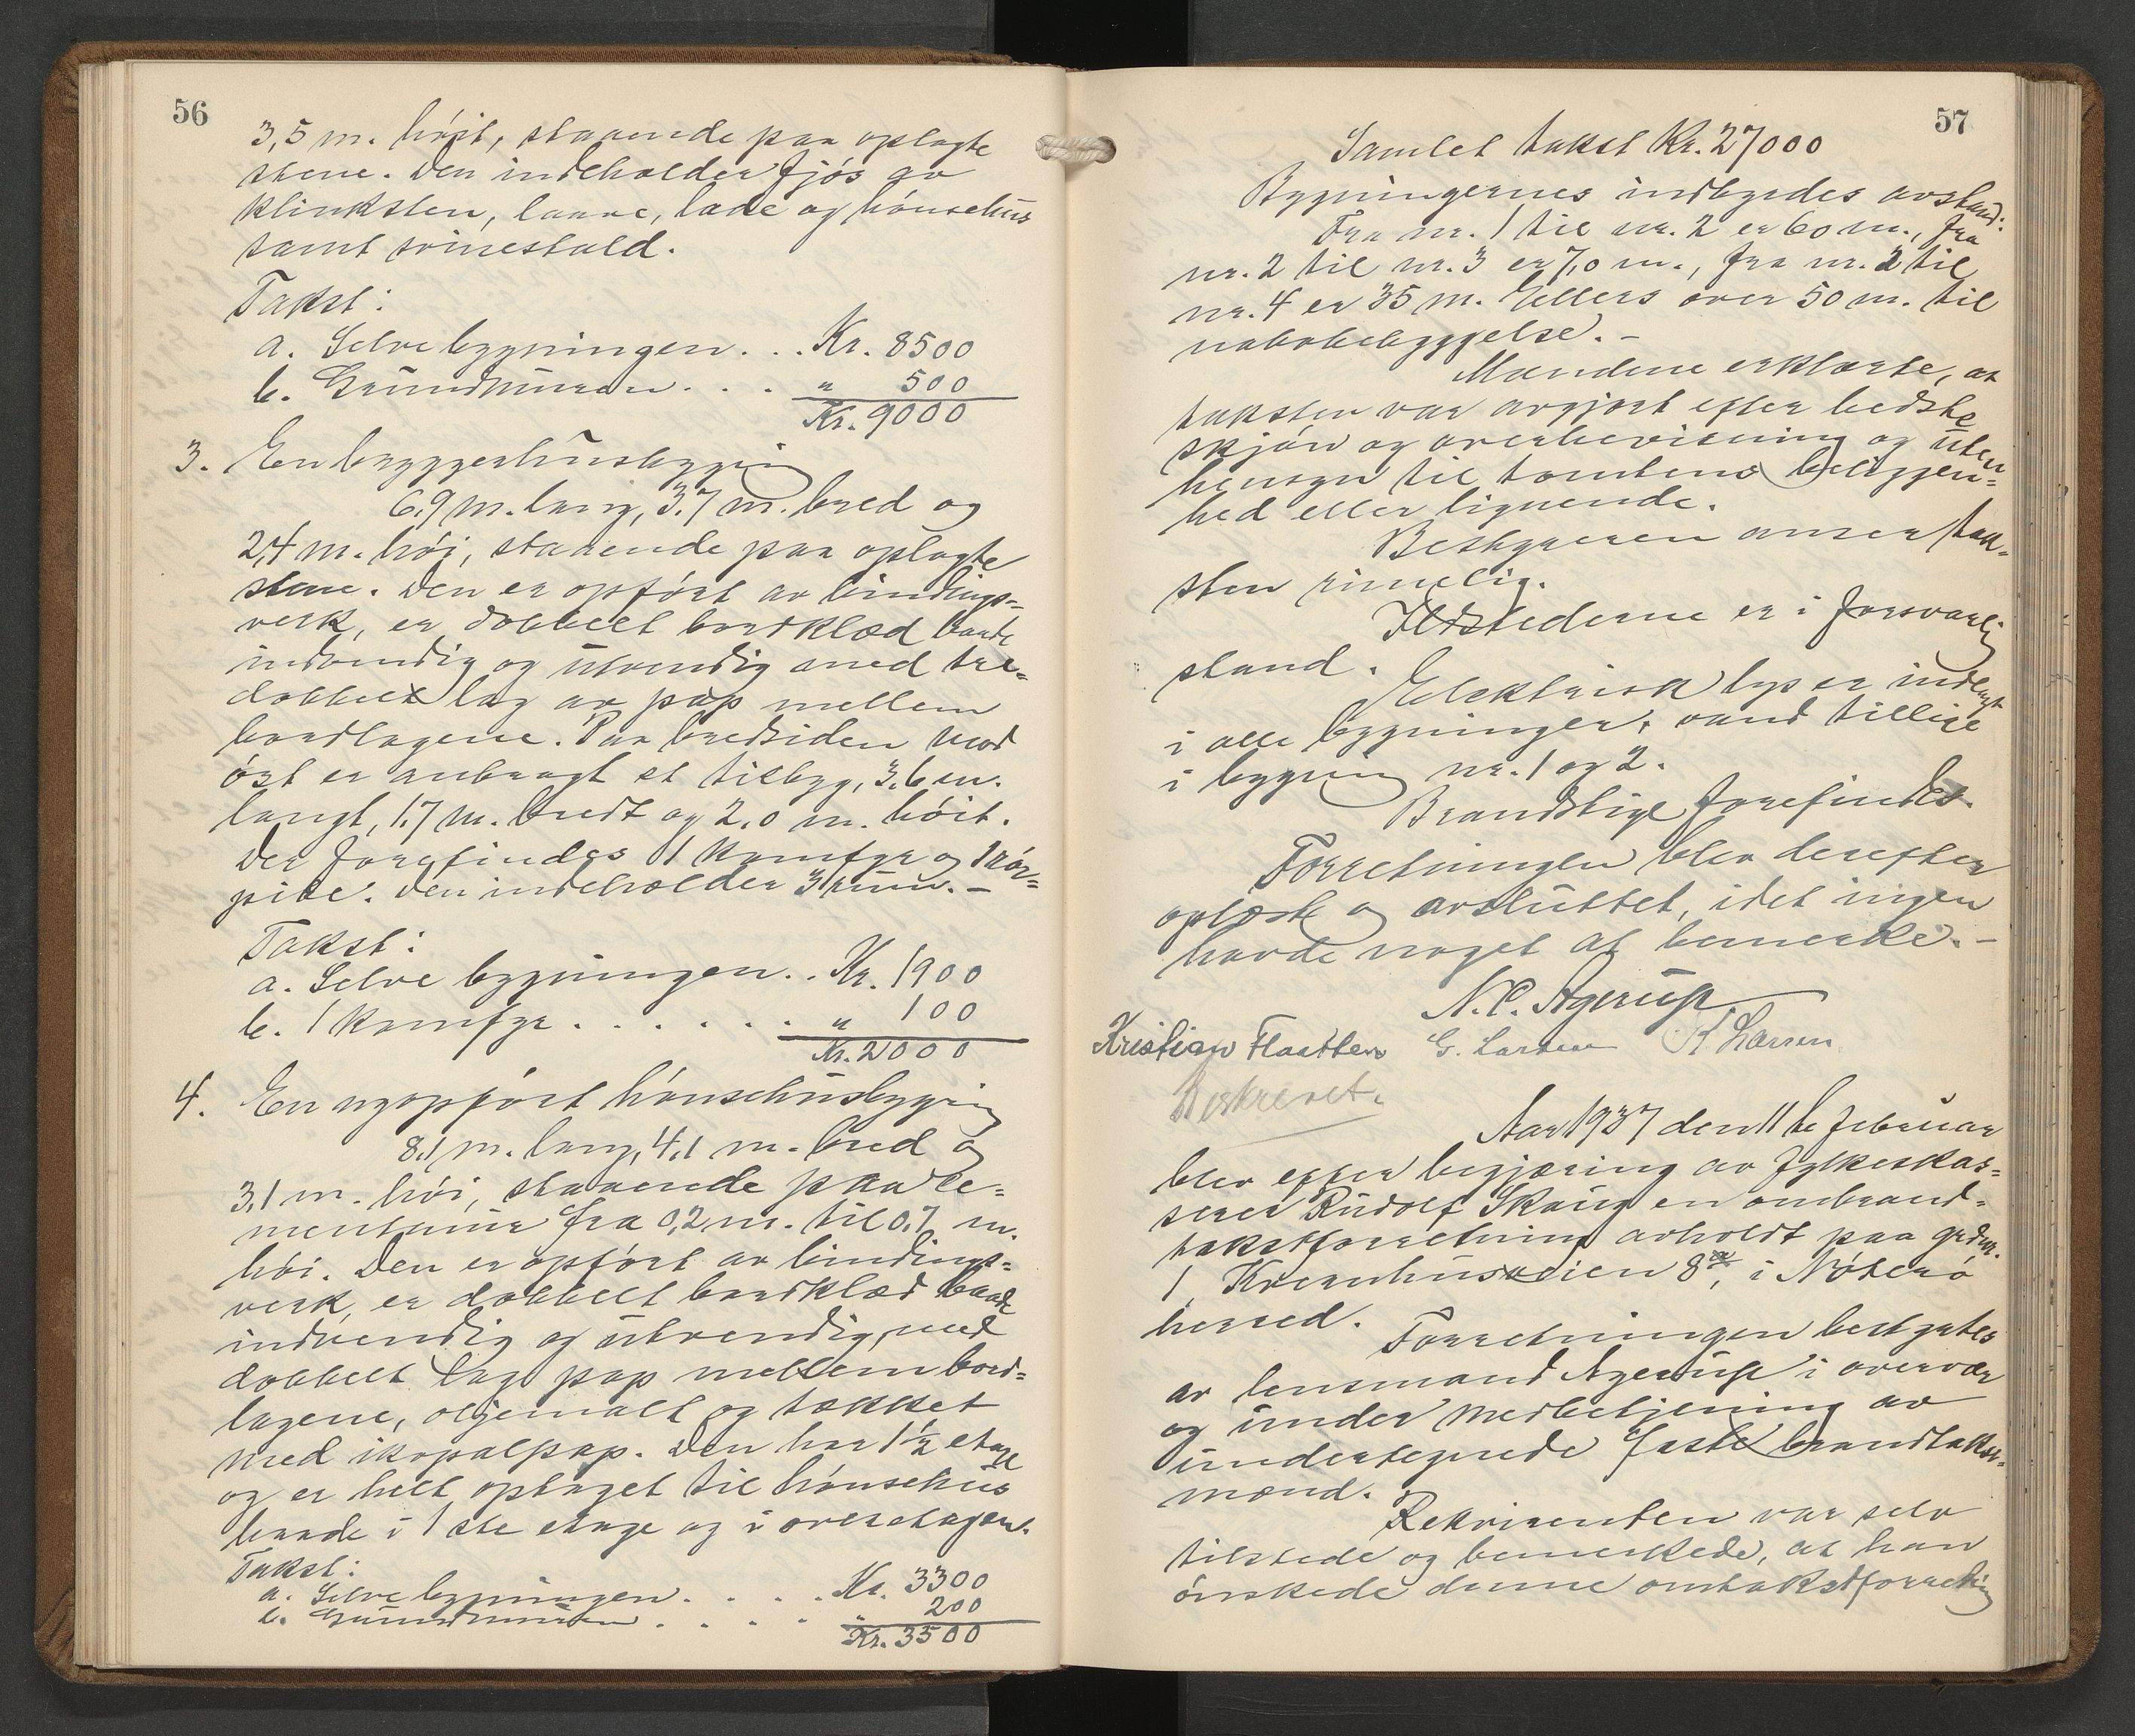 56
3,5 m. höit, staaende paa oplagte
stene. Den indeholder fjös av
klinksten, laave, lade og hönsehus
samt svinestald.
Takst:
a. Selve bygningen. . . Kr. 8500
b. Grundmuren. . . „ 500
Kr. 9000
3. En bryggerhusbygning
6,9 m. lang, 3,7 m. bred og
2,4 m. höi, staaende paa oplagte
stene. Den er opfört av bindings=
verk, er dobbelt bordklæd baade
indvendig og utvendig med tre=
dobbelt lag av pap mellem
bordlagene. Paa bredsiden mod
öst er anbragt et tilbyg, 3,6 m.
langt, 1,7 m. bredt og 2,0 m. höit.
Der forefindes 1 komfyr og 1 rör=
pibe. Den indeholder 3 rum. -
Takst:
a. Selve bygningen. . Kr. 1900
b. 1 komfyr. . . . . . „ 100
Kr. 2000
4. En nyopfört hönsehusbygning
8,1 m. lang, 4,1 m. bred og
3,1 m. höi, staaende paa ce=
mentmur fra 0,2 m. til 0,7 m.
höi. Den er opfört av bindings=
verk, er dobbelt bordklæd baade
indvendig og utvendig, med
dobbelt lag pap mellem bord=
lagene, oljemalt og tækket
med ikopalpap. Den har 1½ etage
og er helt optaget til hönsehus
baade i 1ste etage og i overetagen.
Takst:
a. Selve bygningen. . . . Kr. 3300
b. Grundmuren . . . . „ 200
Kr. 3500
57
Samlet takst Kr. 27000
Bygningernes indbyrdes avstand:
Fra nr. 1 til nr. 2 er 60 m., fra
nr. 2 til nr. 3 er 7,0 m., fra nr. 2 til
nr. 4 er 35 m. Ellers over 50 m. til
nabobebyggelse. -
Mændene erklærte, at
taksten var avgjort efter bedste
skjön og overbevisning og uten
hensyn til tomtens beliggen=
hed eller lignende.
Bestyreren anser tak=
sten rimelig.
Ildstederne er i forsvarlig
stand.
Elektrisk lys er indlagt
i alle bygninger, vand tillike
i bygning nr. 1 og 2.
Brandstige forefindes.
Forretningen blev derefter
oplæst og avsluttet, idet ingen
havde noget at bemerke. -
N. C. Agerup
Kristian Flaatten G. Larsen K Larsen
Beskrevet.
Aar 1937 den 11te februar
blev efter begjæring av fylkeskas=
serer Rudolf Skaug en ombrand=
takstforretning avholdt paa grdnr.
1 Kvernhusveien 8, i Nöterö
herred.
Forretningen bestyrtes
av lensmand Agerup i overvær
og under medbetjening av
undertegnede faste brandtakst=
mænd.
Rekvirenten var selv
tilstede og bemerkede, at han
önskede denne omtakstforretning